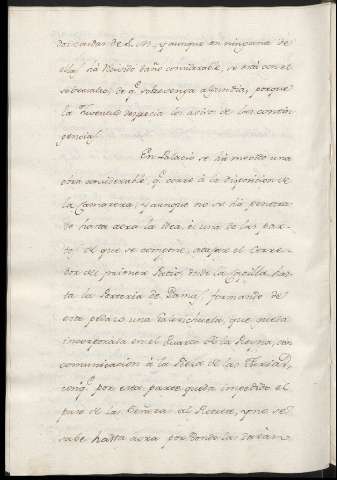 dos caidas de S. M., y aunque en ninguna de
ellas ha havido daño considerable, se está con el
sobresalto de q.e sobrevenga algun dia, porque
la Juventud desprecia los avisos de las contin-
gencias.
En Palacio se ha movido una
obra considerable, q.e corre à la disposicion de
la Camarera, y aunque no se ha penetra-
do hasta aora la idea, es una de las par-
tes el que se compone, atajar el Corre-
dor del primer Patio desde la Capilla has-
ta la Porteria de Damas, formando de
este pedazo una Galerichuela, que queda
incorporada en el Quarto de la Reyna, con
comunicacion à la Pieza de las Furias,
conq.e por esta parte queda impedido el
paso de las Señoras al Retrete, y no se
sabe hasta aora por donde la daràn